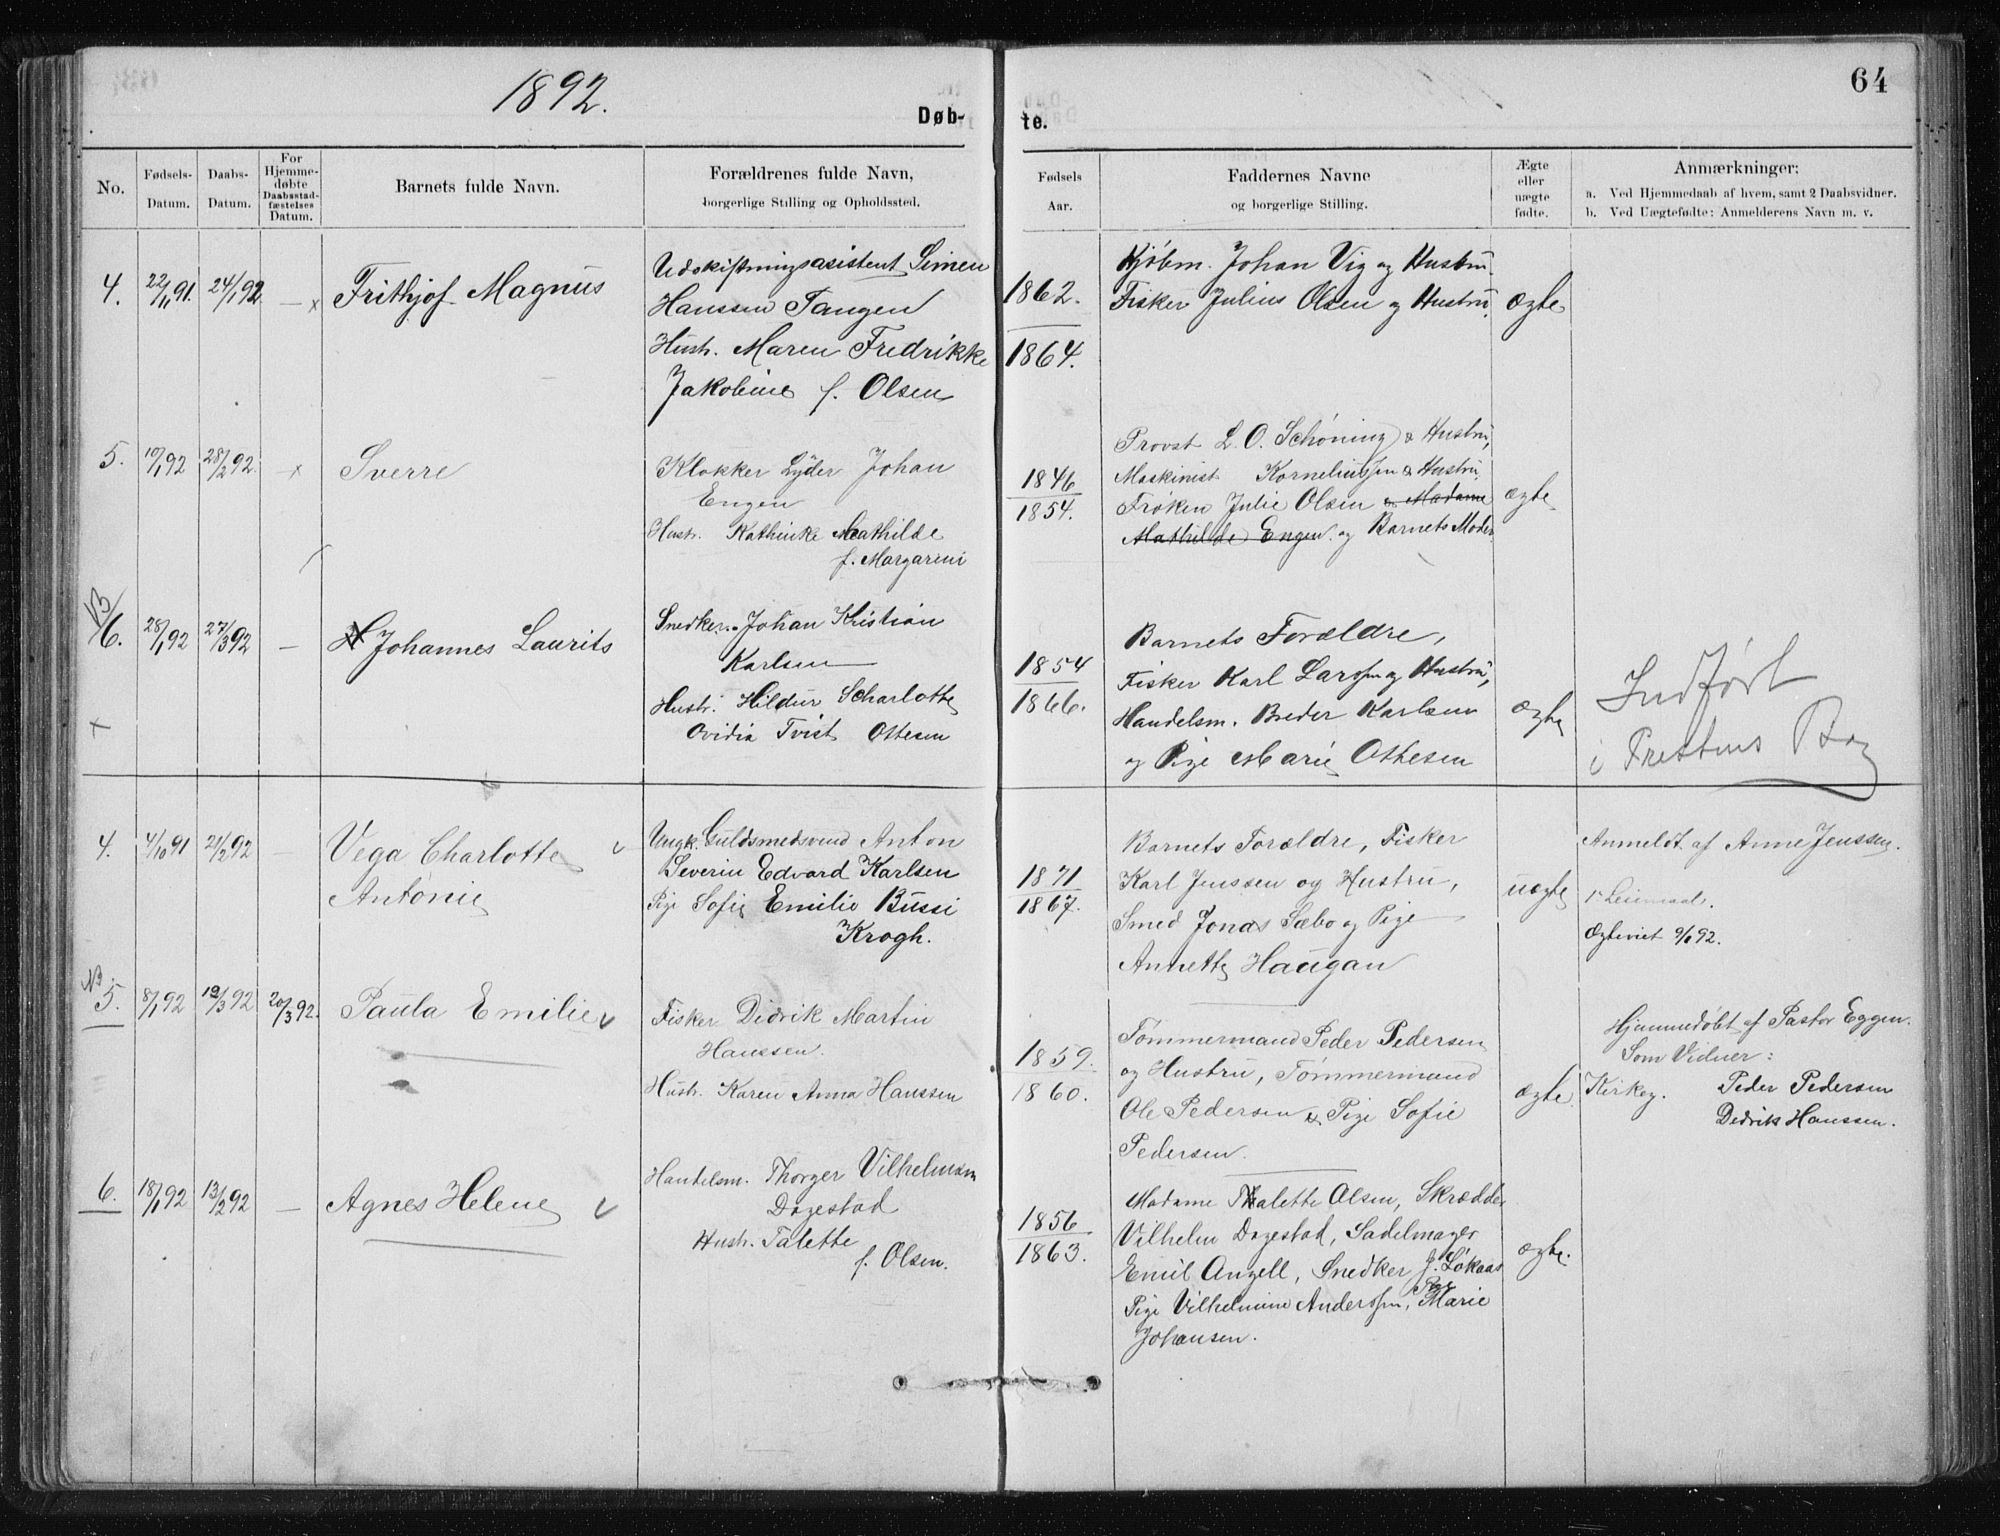 1892.
64
Døb-
te.
No.
Fødsels-
Datum.
Daabs-
Datum.
For
Hjemme-
døbte
Daabsstad-
fæstelses
Datum.
Barnets fulde Navn.
Forældrenes fulde Navn,
borgerlige Stilling og Opholdssted.
Fødsels
Aar.
Faddernes Navne
og borgerlige Stilling.
Ægte
eller
uægte
fødte.
Anmærkninger:
a. Ved Hjemmedaab af hvem, samt 2 Daabsvidner.
b. Ved Uægtefødte: Anmelderens Navn m. v.
4. 22/11 91. 24/1 92 — x Frithjof Magnus
Udskiftningsasistent Simen
Hanssen Tangen
Hustr. Maren Fredrikke
Jakobine f. Olsen
1862.
1864.
Kjøbm. Johan Vig og Hustru.
Fisker Julius Olsen og Hustru.
ægte
5. 10/1 92 28/2 92. — x Sverre
Klokker Lyder Johan
Engen
Hustr. Kathinke Mathilde
f. Margarini
1846
1854.
Provst L. O. Schøning & Hustru,
Maskinist Korneliussen & Hustru
Frøken Julie Olsen & Madame
Mathilde Engen. og Barnets Moder
ægte
NB
6. 28/1 92 27/3 92 — Johannes Laurits
x
Snedker Johan Kristian
Karlsen
Hustr. Hildur Scharlotte
Ovidia Tvist Ottesen
1854
1866.
Barnets Forældre,
Fisker Karl Larssen og Hustru,
Handelsm. Breder Karlsen
og Pige Marie Othesen
ægte
Indført
i Prestens Bog
4. 4/10 91 21/2 92 — Vega Charlotte
Antonie
Ungk. Guldsmedsvend Anton
Severin Edvard Karlsen
Pige Sofie Emilie Bussi
Krogh.
1871
1867.
Barnets Forældre, Fisker
Karl Jenssen og Hustru,
Smed Jonas Sæbo og Pige
Annette Haugan
uægte
Anmeldt af Anne Jenssen.
1ste Leiemaal.
Ægteviet 9/1 92.
NB
5. 8/1 92 12/3 92 20/3 92. Paula Emilie
Fisker Didrik Martin
Hanssen.
Hustr. Karen Anna Hanssen
1859.
1860.
Tømmermand Peder Pedersen
og Hustru, Tømmermand
Ole Pedersen & Pige Sofie
Pedersen.
ægte
Hjemmedøbt af Pastor Eggen.
Som Vidner:
Kirkeg. Peder Pedersen
Didrik Hanssen.
6. 18/1 92 13/2 92 — Agnes Helene
Handelsm. Thorger Vilhelmsen
Dagestad
Hustr. Talette
f. Olsen.
1856
1863.
Madame Thalette Olsen, Skrædder
Vilhelm Dagestad, Sadelmager
Emil Angell, Snedker J. Løkaas
Pige Vilhelmine Anderssen, Pige Marie
Johansen.
ægte.